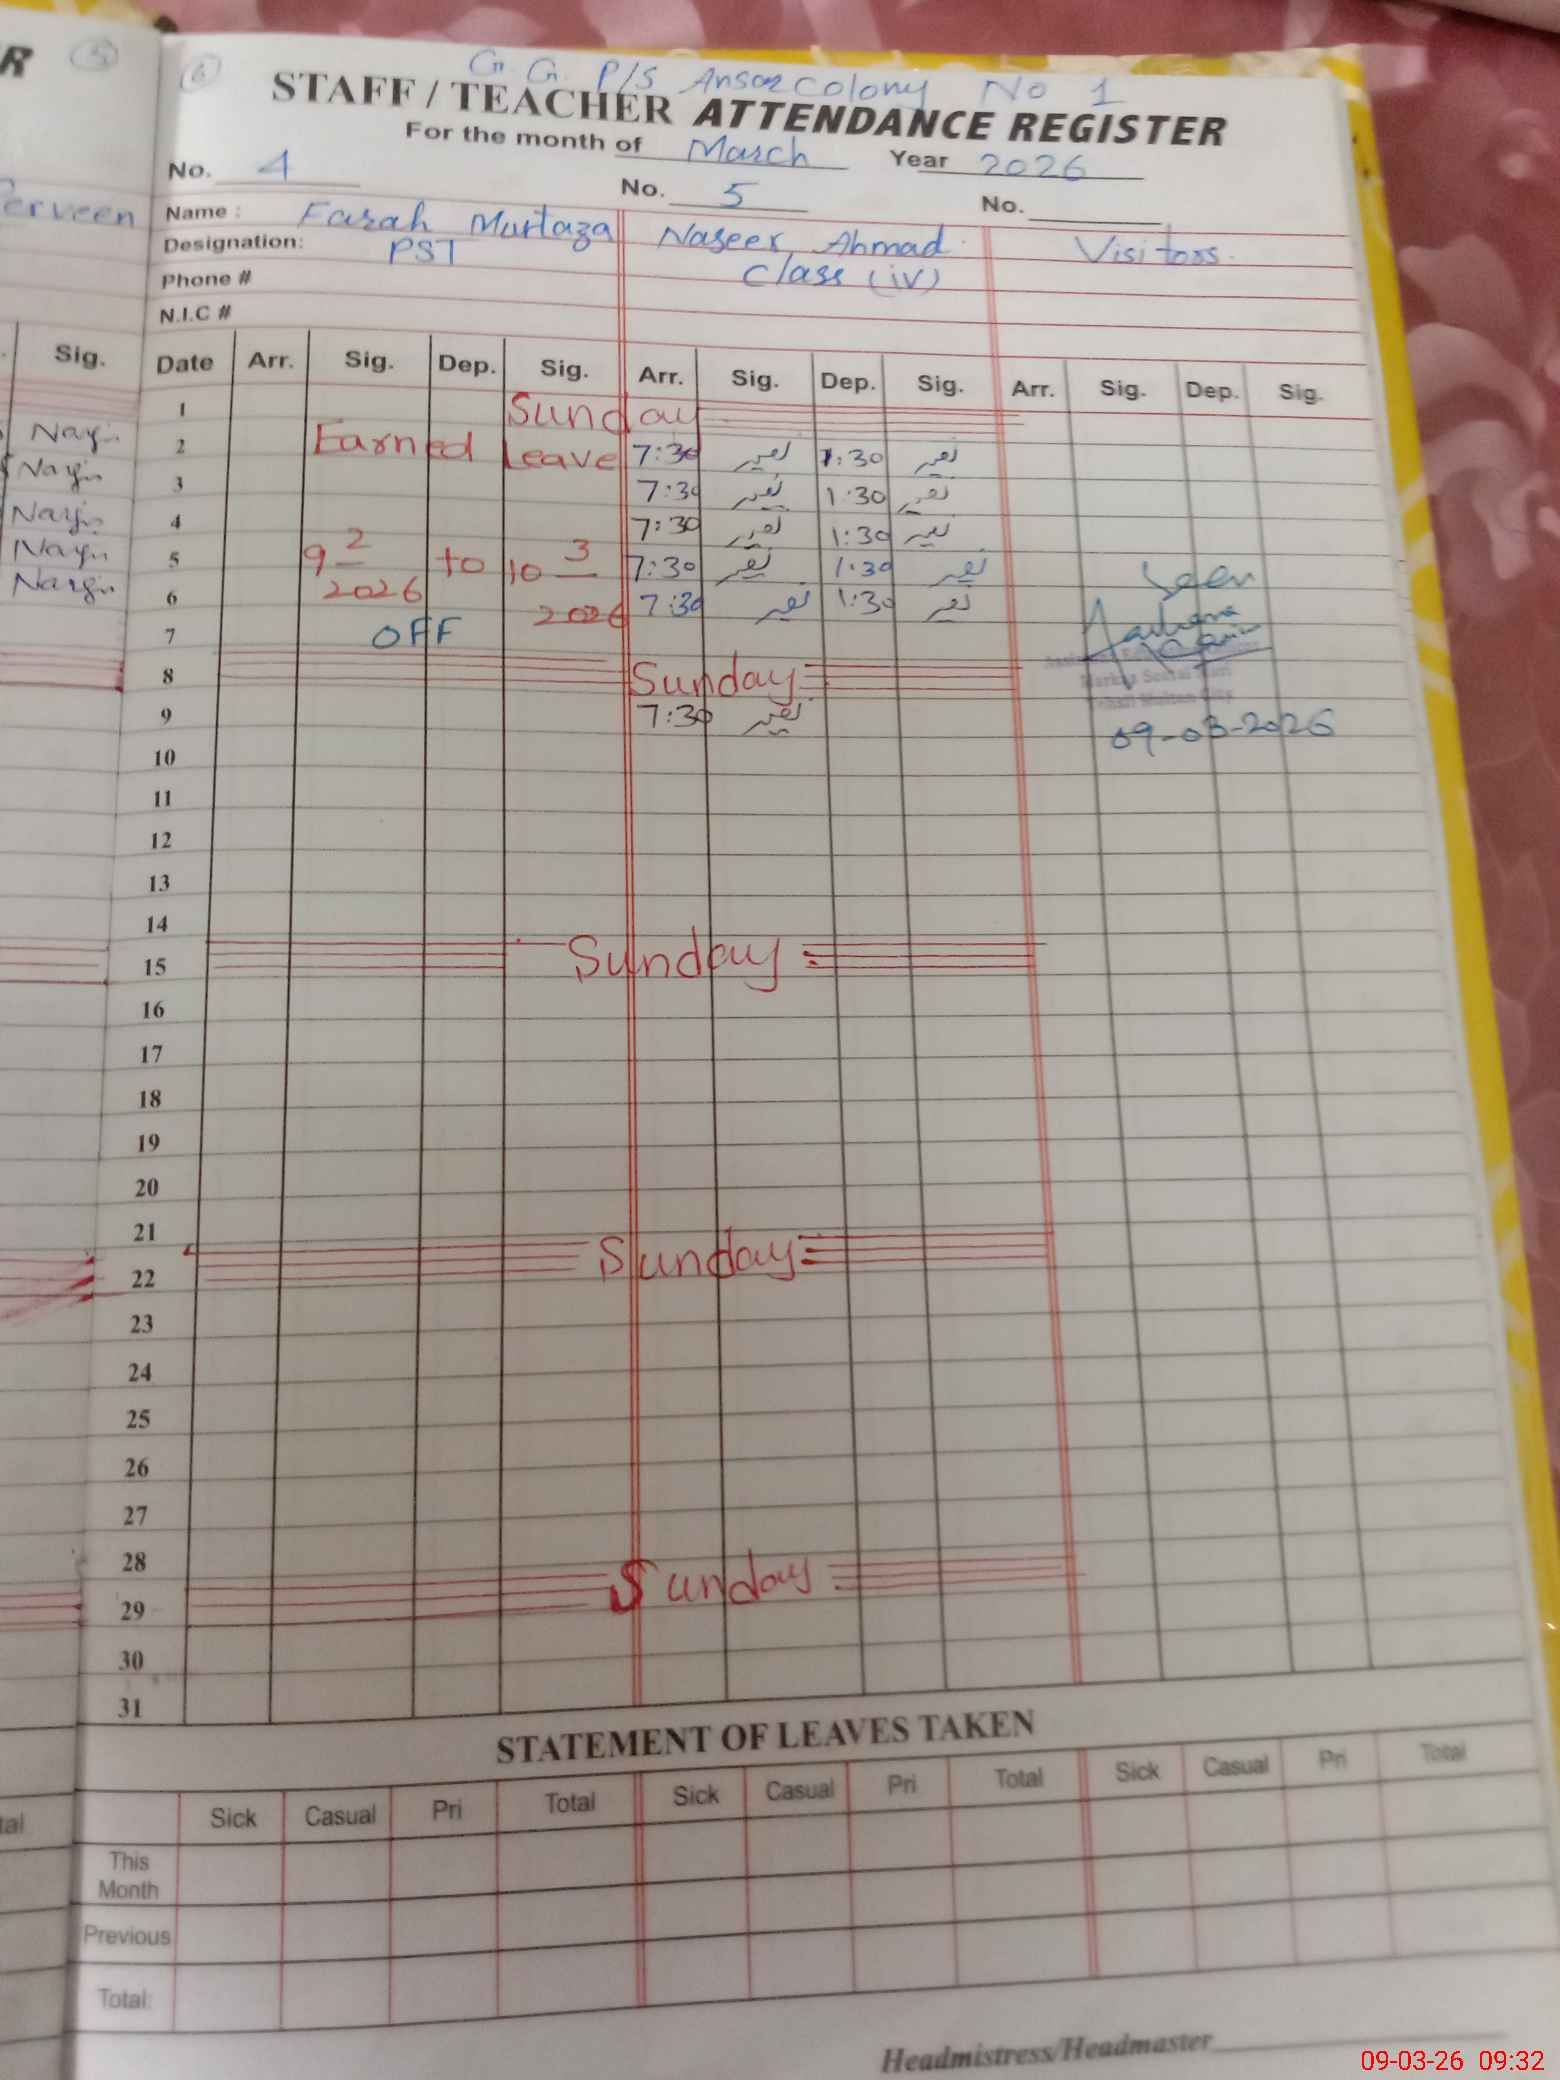 R 5
6 G. G. P/S Ansar Colony No 1
STAFF / TEACHER ATTENDANCE REGISTER
For the month of March Year 2026
No. 4 No. 5 No.
Perveen
Name : Farah Murtaza Naseer Ahmad Visitors.
Designation: PST Class (iv)
Phone #
N.I.C #
Sig. Date Arr. Sig. Dep. Sig. Arr. Sig. Dep. Sig. Arr. Sig. Dep. Sig.
1 Sunday
2 Earned Leave 7:30 نصیر 1:30 نصیر
3 7:30 نصیر 1:30 نصیر
4 7:30 نصیر 1:30 نصیر
5 9 2/2026 to 10 3/2026 7:30 نصیر 1:30 نصیر
6 7:30 نصیر 1:30 نصیر
Seen
7 OFF
8 Sunday
Tehsil Multan City
9 7:30 نصیر
09-03-2026
10
11
12
13
14
15 Sunday
16
17
18
19
20
21
22 Sunday
23
24
25
26
27
28
29 Sunday
30
31
STATEMENT OF LEAVES TAKEN
Sick Casual Pri Total Sick Casual Pri Total Sick Casual Pri Total
tal
This Month
Previous
Total:
Headmistress/Headmaster
09-03-26 09:32